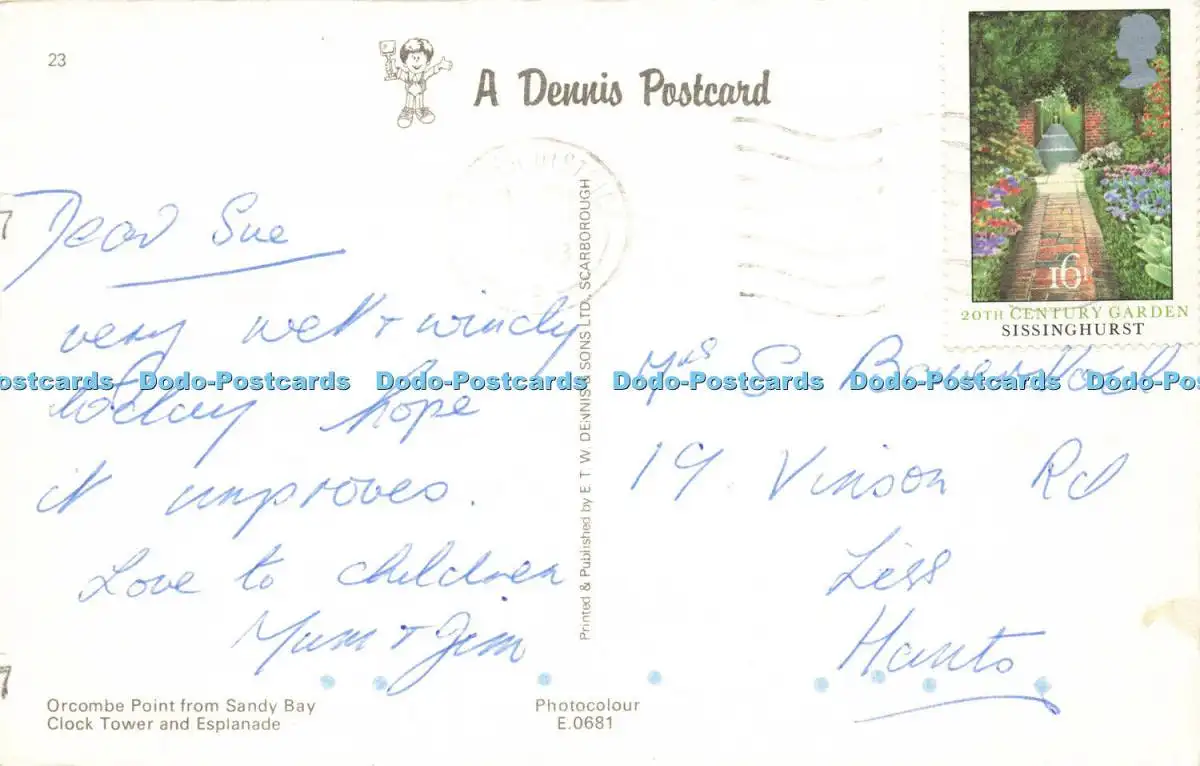 23
A Dennis Postcard
16P
20TH CENTURY GARDEN
SISSINGHURST
Dear Sue
very wet + windy
today hope
it improves.
Love to children
Mum + Jim
Printed & Published by E. T. W. DENNIS & SONS LTD., SCARBOROUGH
Mrs S
19 Vinson Rd
Liss
Hants
Dodo-Postcards Dodo-Postcards Dodo-Postcards Dodo-Postcards Dodo-Postcards
Orcombe Point from Sandy Bay
Clock Tower and Esplanade
Photocolour
E.0681